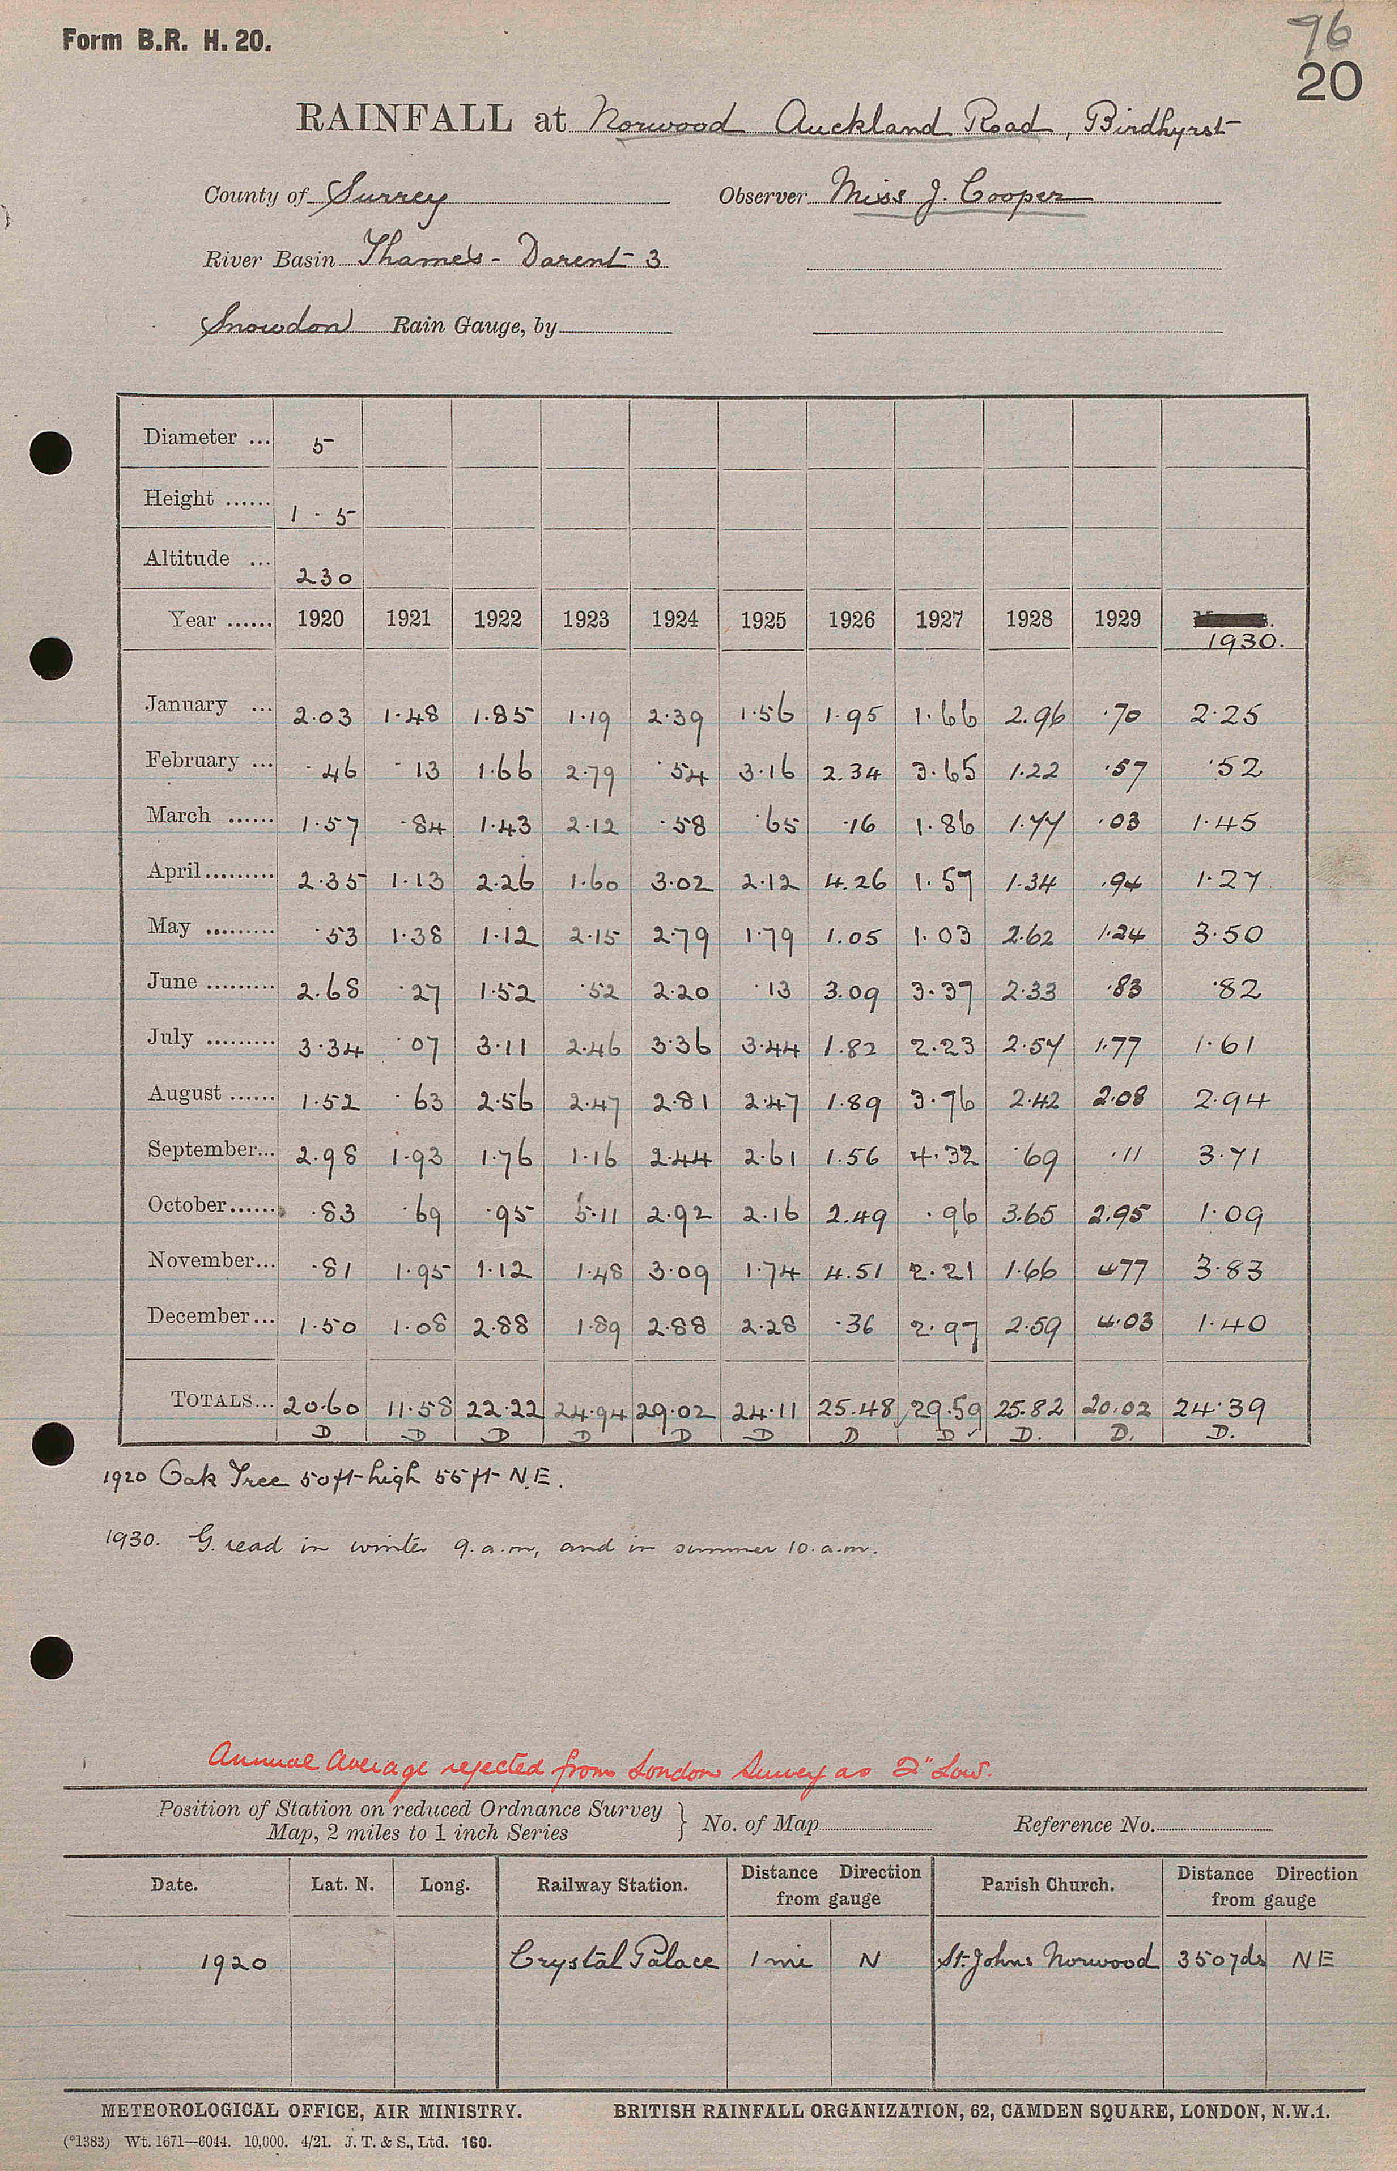 Form B.R. H. 20.
96
20
RAINFALL at Norwood Auckland Road, Birdhyrst
County of Surrey Observer Miss J. Cooper
River Basin Thames - Darent 3
Snowdon Rain Gauge, by
Diameter ... 5
Height ...... 1 - 5
Altitude ... 230
Year ...... 1920 1921 1922 1923 1924 1925 1926 1927 1928 1929 1930.
January ... 2.03 1.48 1.85 1.19 2.39 1.56 1.95 1.66 2.96 .70 2.25
February ... .46 .13 1.66 2.79 .54 3.16 2.34 3.65 1.22 .57 .52
March ...... 1.57 .84 1.43 2.12 .58 .65 .16 1.86 1.77 .03 1.45
April ......... 2.35 1.13 2.26 1.60 3.02 2.12 4.26 1.57 1.34 .94 1.27
May ......... .53 1.38 1.12 2.15 2.79 1.79 1.05 1.03 2.62 1.24 3.50
June ......... 2.68 .27 1.52 .52 2.20 .13 3.09 3.37 2.33 .83 .82
July ......... 3.34 .07 3.11 2.46 3.36 3.44 1.82 2.23 2.57 1.77 1.61
August ...... 1.52 .63 2.56 2.47 2.81 2.47 1.89 3.76 2.42 2.08 2.94
September... 2.98 1.93 1.76 1.16 2.44 2.61 1.56 4.32 .69 .11 3.71
October...... .83 .69 .95 5.11 2.92 2.16 2.49 .96 3.65 2.95 1.09
November... .81 1.95 1.12 1.48 3.09 1.74 4.51 2.21 1.66 4.77 3.83
December... 1.50 1.08 2.88 1.89 2.88 2.28 .36 2.97 2.59 4.03 1.40
TOTALS... 20.60 11.58 22.22 24.94 29.02 24.11 25.48 29.59 25.82 20.02 24.39
D D D D D D D D D. D. D.
1920 Oak Tree 50ft high 55ft N.E.
1930. G. read in winter 9.a.m, and in summer 10.a.m.
Annual Average rejected from London Survey as 2" Low.
Position of Station on reduced Ordnance Survey
Map, 2 miles to 1 inch Series } No. of Map Reference No.
Date. Lat. N. Long. Railway Station. Distance Direction from gauge Parish Church. Distance Direction from gauge
1920 Crystal Palace 1 mi N St. Johns Norwood 350 yds NE
METEOROLOGICAL OFFICE, AIR MINISTRY. BRITISH RAINFALL ORGANIZATION, 62, CAMDEN SQUARE, LONDON, N.W.1.
(*1383) Wt. 1671—6044. 10,000. 4/21. J. T. & S., Ltd. 160.